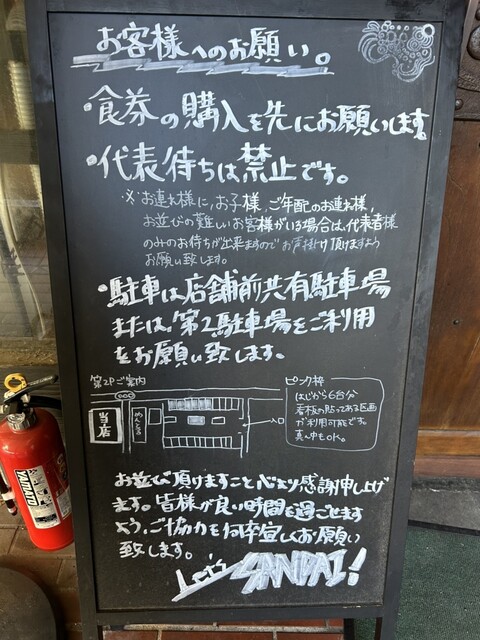 お客様へのお願い。
・食券の購入を先にお願いします
・代表待ちは禁止です。
※お連れ様に、お子様、ご年配のお連れ様、
お並びの難しいお客様がいる場合は、代表者様
のみのお待ちが出来ますのでお声掛け頂けますよう
お願い致します。
・駐車は店舗前共有駐車場
または、第2駐車場をご利用
をお願い致します。
第2Pご案内
当店
入口
ピンク枠
はじから6台分
看板の貼ってある区画
が利用可能です。
真ん中もOK。
お並び頂けますこと心より感謝申し上げ
ます。皆様が良い時間を過ごせます
よう、ご協力を何卒宜しくお願い
致します。
Let's
SANDAI!
YAMATO